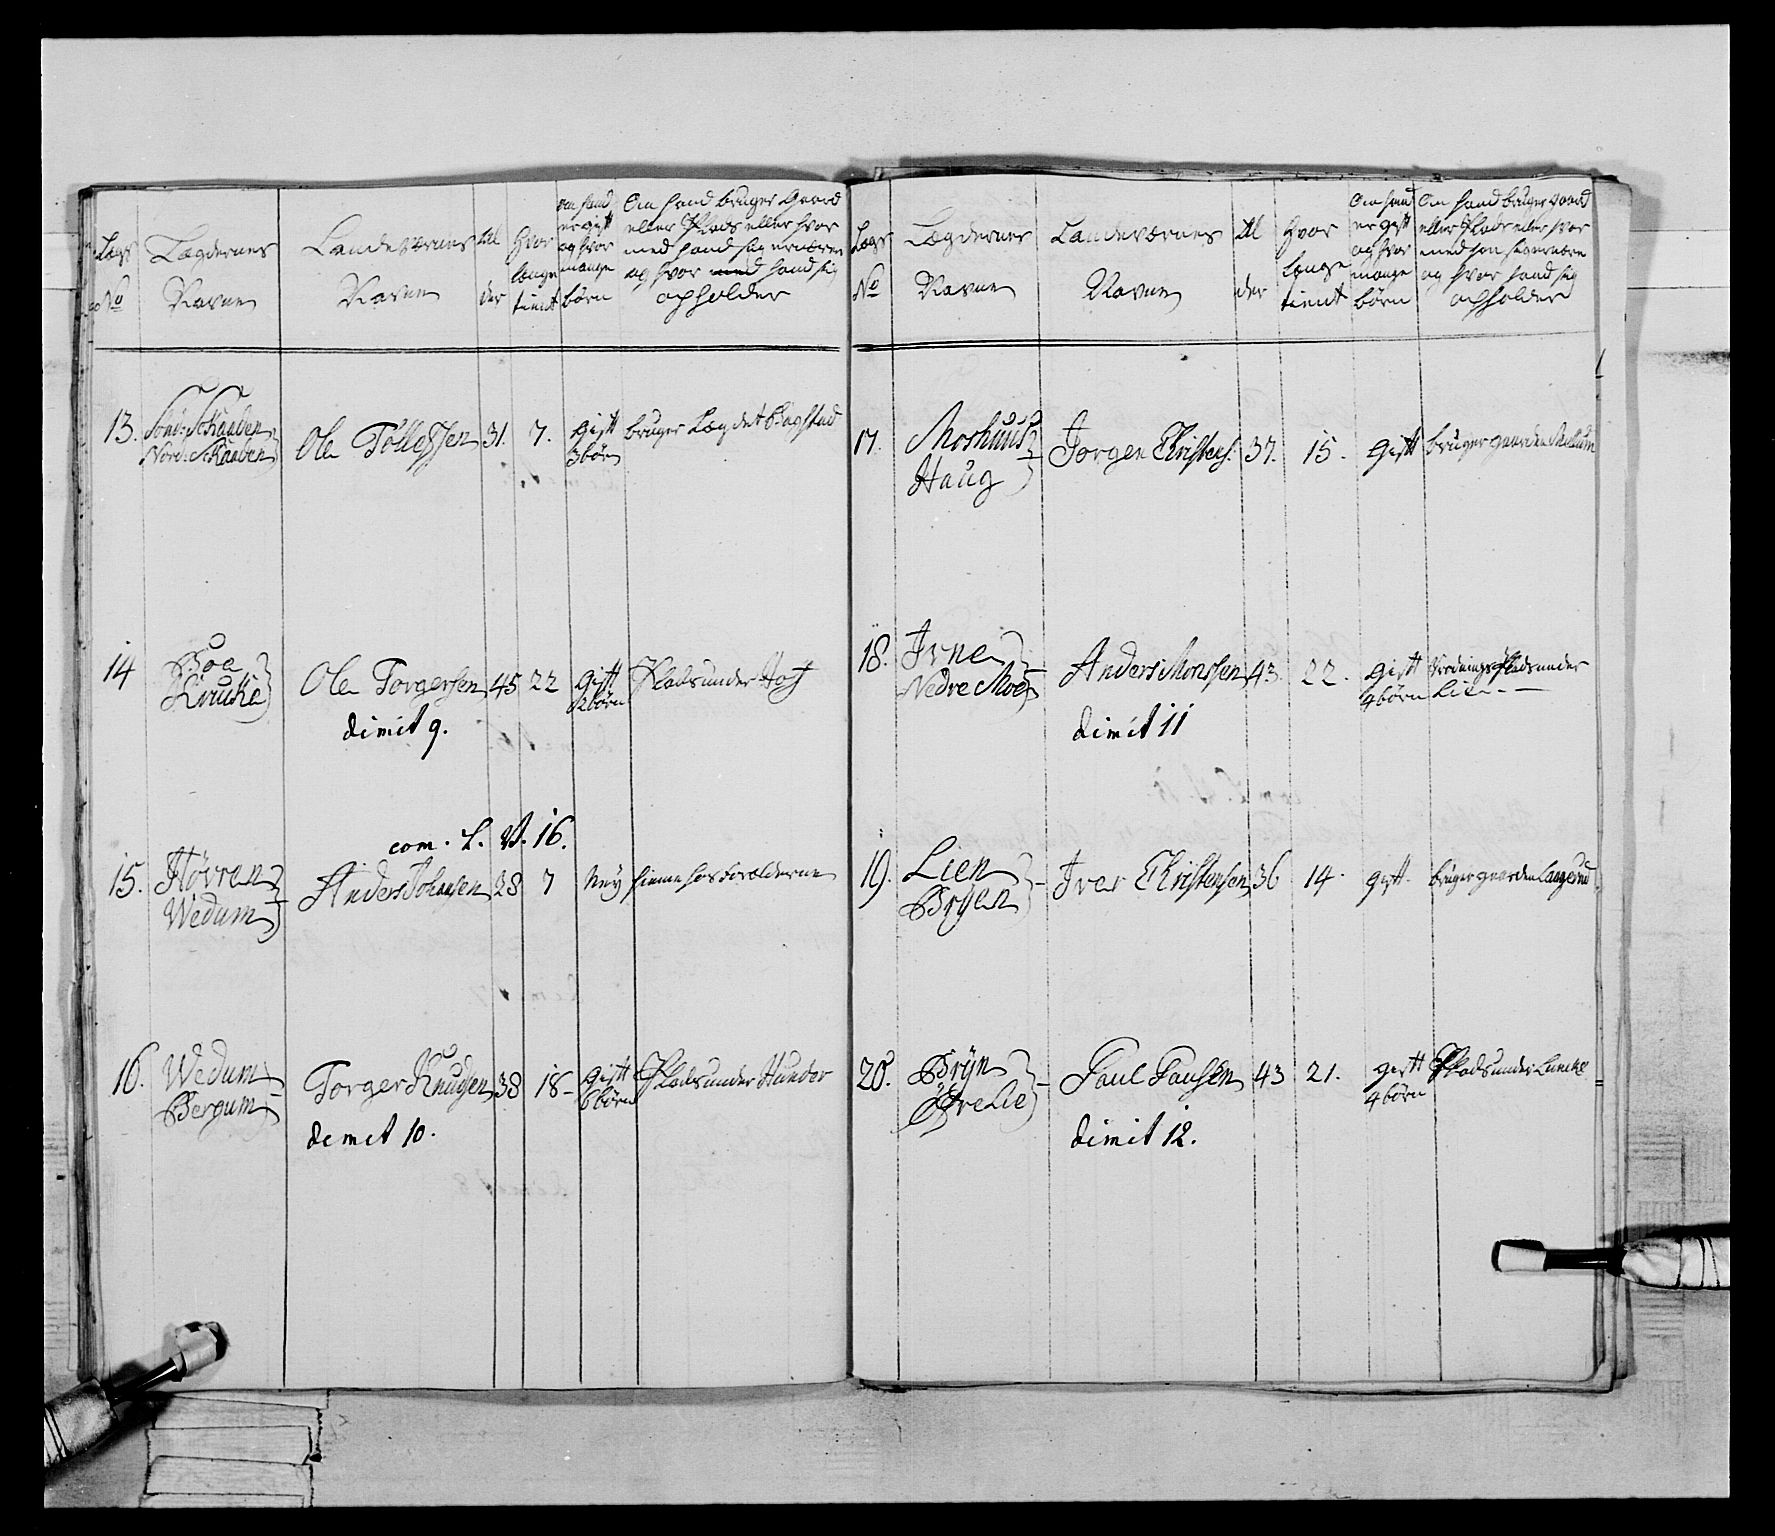 Lægs
No
Lægdernes
Navne
Landeværnes
Navne
Al
der
Hvor
længe
tient
om hand
er gift
og hvor
mange
børn
Om hand bruger Gaard
eller Plads eller hvor
med hand sig ernærer
og hvor med hand sig
opholder
13.
Sönd: Schaaben
Nord: Schaaben
Ole Tollefsen
31.
7.
Gift
3 börn
bruger Lægdet Bagstad
14
Boe
Kruke
Ole Torgersen
45
22
gift
2 börn
Plads under
dimit 9.
com. L. V. 16.
15.
Hövren
Wedum
Anders Johansen
28
7
Ney
hiemme hos Forælderne
16.
Wedum
Bergum
Torger Knudsen
38
18
gift
6 börn
Plads under Hunder
dimit 10.
Lægs
No
Lægdernes
Navne
Landeværnes
Navne
Al
der
Hvor
længe
tient
Om hand
er gift
og hvor
mange
börn
Om hand bruger gaard
eller Plads eller hvor
med han sig ernære
og hvor hand sig
opholder
17.
Moshuus
Haug
Jorgen Christens.
37.
15.
gift
bruger gaarden Mellum
18.
Nedre Moe
Anders Monssen
43.
22.
gift
4 börn
Rödnings Plads under
Lie
dimit 11
19.
Lien
Bryen
Iver Christensen
36
14.
gift.
bruger gaarden Laagerud
20.
Bryn
Öfre Lie
Paul Paulsen
43
21.
gift
4 börn
Plads under Lunche
dimit 12.